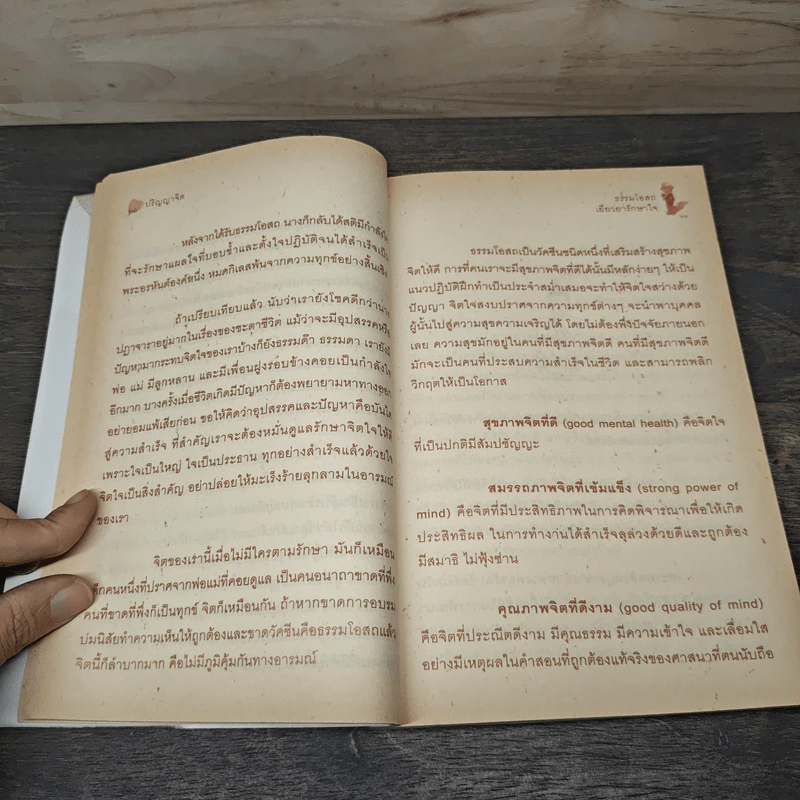 ปริญญาจิต
หลังจากได้รับธรรมโอสถ นางก็กลับได้สติมีกำลังใจ
ที่จะรักษาแผลใจที่บอบช้ำและตั้งใจปฏิบัติจนได้สำเร็จเป็น
พระอรหันต์องค์หนึ่ง หมดกิเลสพ้นจากความทุกข์อย่างสิ้นเชิง
ถ้าเปรียบเทียบแล้ว นับว่าเรายังโชคดีกว่านาง
ปฏาจาราอยู่มากในเรื่องของชะตาชีวิต แม้ว่าจะมีอุปสรรคหรือ
ปัญหามากระทบจิตใจของเราบ้างก็ยังธรรมด๊า ธรรมดา เรายังมี
พ่อ แม่ มีลูกหลาน และมีเพื่อนฝูงรอบข้างคอยเป็นกำลังใจ
อีกมาก บางครั้งเมื่อชีวิตเกิดมีปัญหาก็ต้องพยายามหาทางออก
อย่ายอมแพ้เสียก่อน ขอให้คิดว่าอุปสรรคและปัญหาคือบันได
สู่ความสำเร็จ ที่สำคัญเราจะต้องหมั่นดูแลรักษาจิตใจให้ดี
เพราะใจเป็นใหญ่ ใจเป็นประธาน ทุกอย่างสำเร็จแล้วด้วยใจ
จิตใจเป็นสิ่งสำคัญ อย่าปล่อยให้มะเร็งร้ายลุกลามในอารมณ์
ของเรา
จิตของเรานี้เมื่อไม่มีใครตามรักษา มันก็เหมือน
เด็กคนหนึ่งที่ปราศจากพ่อแม่ที่คอยดูแล เป็นคนอนาถาขาดที่พึ่ง
คนที่ขาดที่พึ่งก็เป็นทุกข์ จิตก็เหมือนกัน ถ้าหากขาดการอบรม
บ่มนิสัยทำความเห็นให้ถูกต้องและขาดวัคซีนคือธรรมโอสถแล้ว
จิตนี้ก็ลำบากมาก คือไม่มีภูมิคุ้มกันทางอารมณ์
ธรรมโอสถ
เยียวยารักษาใจ
ธรรมโอสถเป็นวัคซีนชนิดหนึ่งที่เสริมสร้างสุขภาพ
จิตให้ดี การที่คนเราจะมีสุขภาพจิตที่ดีได้นั้นมีหลักง่ายๆ ให้เป็น
แนวปฏิบัติฝึกทำเป็นประจำสม่ำเสมอจะทำให้จิตใจสว่างด้วย
ปัญญา จิตใจสงบปราศจากความทุกข์ต่างๆ จะนำพาบุคคล
ผู้นั้นไปสู่ความสุขความเจริญได้ โดยไม่ต้องพึ่งปัจจัยภายนอก
เลย ความสุขมักอยู่ในคนที่มีสุขภาพจิตดี คนที่มีสุขภาพจิตดี
มักจะเป็นคนที่ประสบความสำเร็จในชีวิต และสามารถพลิก
วิกฤตให้เป็นโอกาส
สุขภาพจิตที่ดี (good mental health) คือจิตใจ
ที่เป็นปกติมีสัมปชัญญะ
สมรรถภาพจิตที่เข้มแข็ง (strong power of
mind) คือจิตที่มีประสิทธิภาพในการคิดพิจารณาเพื่อให้เกิด
ประสิทธิผล ในการทำงานได้สำเร็จลุล่วงด้วยดีและถูกต้อง
มีสมาธิ ไม่ฟุ้งซ่าน
คุณภาพจิตที่ดีงาม (good quality of mind)
คือจิตที่ประณีตดีงาม มีคุณธรรม มีความเข้าใจ และเลื่อมใส
อย่างมีเหตุผลในคำสอนที่ถูกต้องแท้จริงของศาสนาที่ตนนับถือ